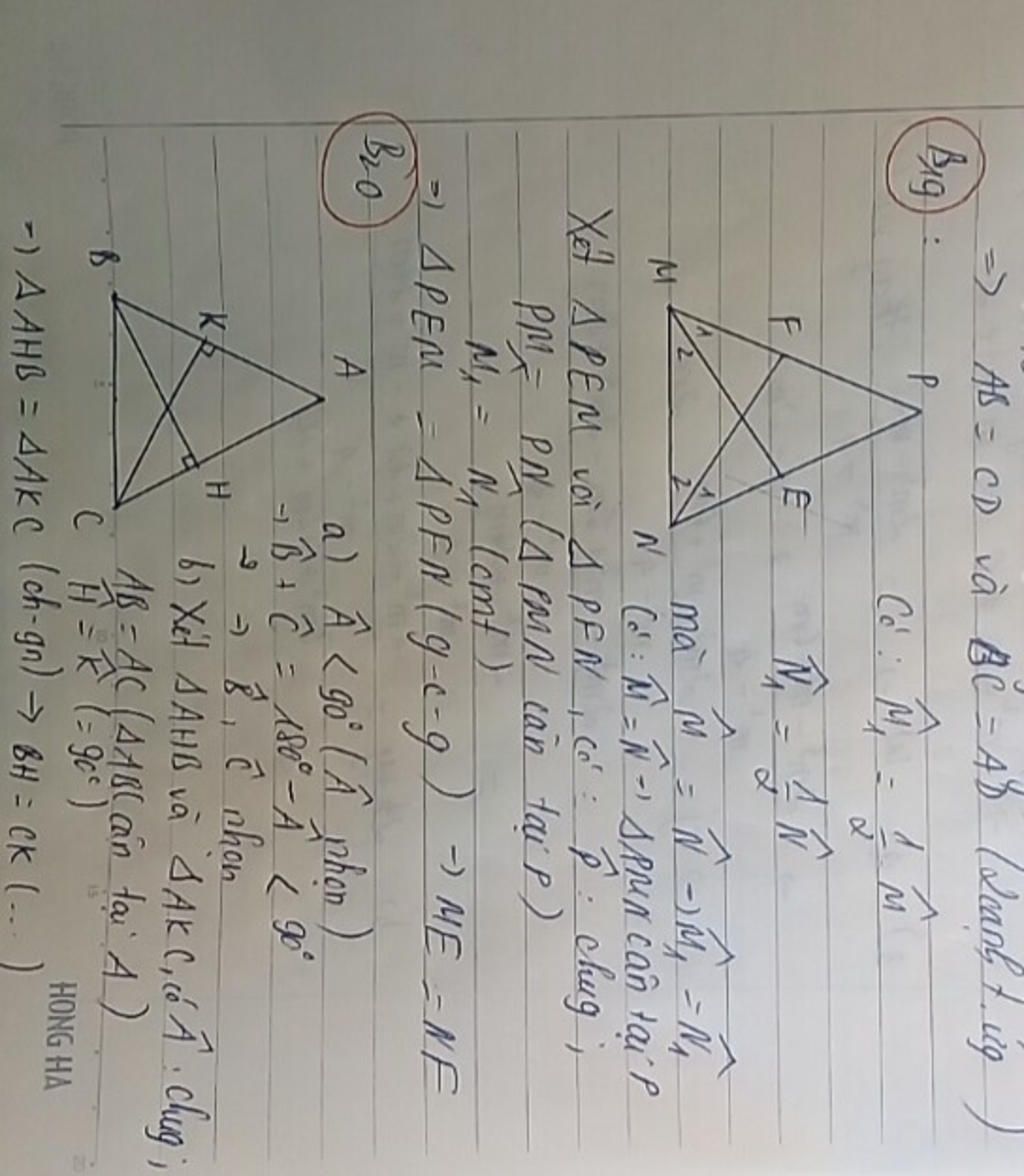 =) AB = CD và BC = AD (2 cạnh t.ứg)
B19 :
P
F
E
M
1
2
1
2
N
Có : M̂₁ = 1/2 M̂
N̂₁ = 1/2 N̂
mà M̂ = N̂ -) M̂₁ = N̂₁
Có : M̂ = N̂ -) Δ PMN cân tại P
Xét Δ PEM với Δ PFN, có : P̂ : chug ;
PM = PN (Δ PMN cân tại P)
M̂₁ = N̂₁ (cmt)
=) Δ PEM = Δ PFN (g-c-g) -) ME = NF
B20
A
K
H
B
C
a) Â < 90° (Â nhọn)
-) B̂ + Ĉ = 180° - Â < 90°
-) -) B̂, Ĉ nhọn
b) Xét Δ AHB và Δ AKC, có Â : chug ;
AB = AC (Δ ABC cân tại A)
Ĥ = K̂ (= 90°)
=) Δ AHB = Δ AKC (ch-gn) -> BH = CK (... )
HONG HA